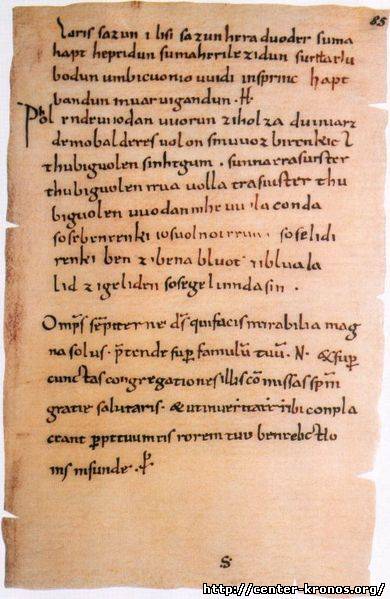 85
sazun sazun hera duoder suma
hapt heptidun sumaherilezidun sumaclu
bodun umbicuonio uuidi insprinc hapt
bandun inuar uigandun .H.
Phol endeuuodan uuorun ziholza duuuart
demobalderes uolon sinuuoz birenkict
thubiguolen sinhtgunt . sunnaerasuister
thubiguolen friia uolla erasuister thu
biguolen uuodan
sosebenrenki soselidi
renki ben zibena bluot zibluoda
lid zigeliden sosegelimidasin .
Omps sepiterne ds quifacis mirabilia mag
na solus . ptende sup famulu tuu . N . & sup
cunctas congregationes illis comissas spm
gratie salutaris . & utinueritate tibi conpla
ceant eis rorem tuu benedictio
nis infunde .
S
http://center-kronos.org/